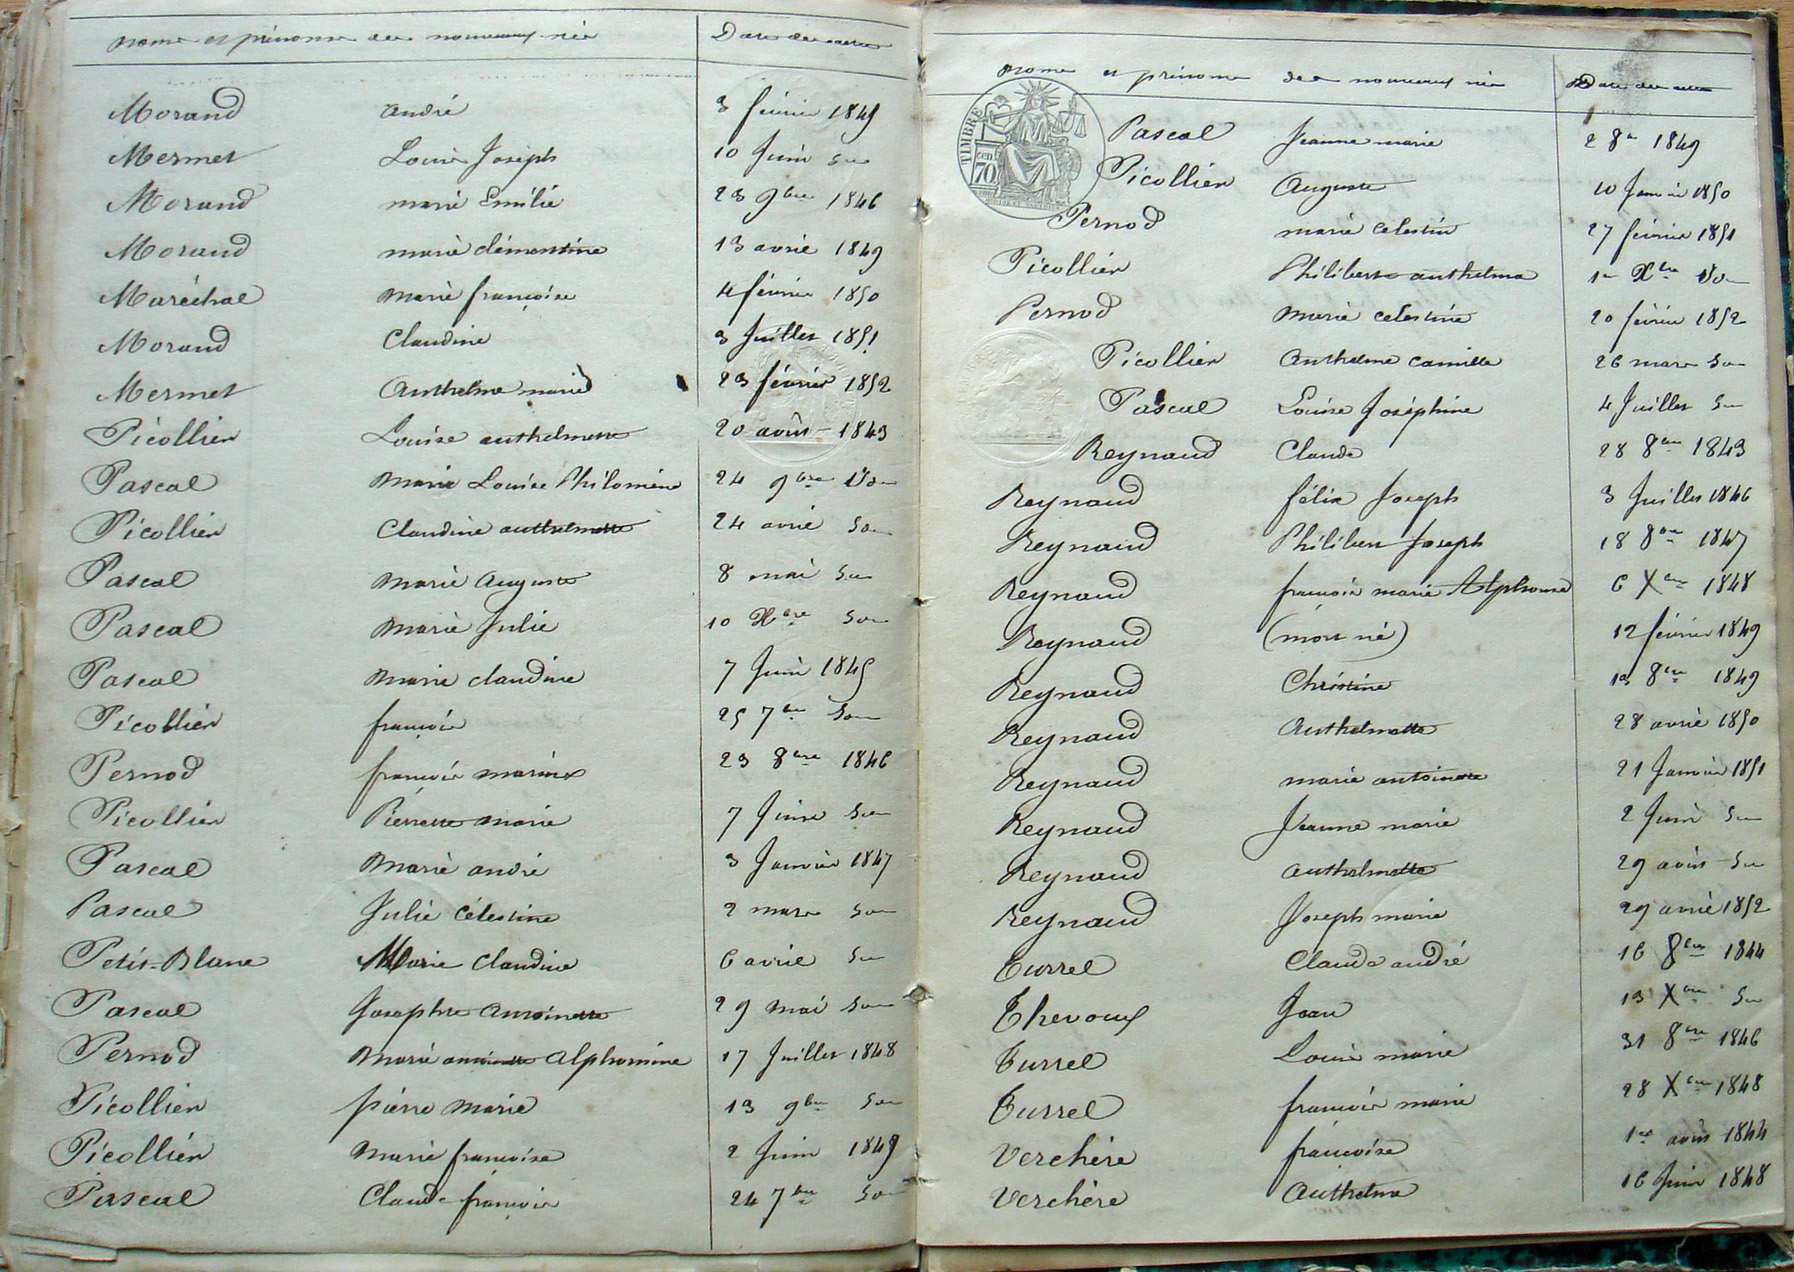 noms et prénoms des nouveaux nés Date des actes
Morand andré 3 février 1845
Mermet Louis Joseph 10 Juin Don
Morand marie Emilie 23 9bre 1846
Morand marie clémentine 13 avril 1849
Maréchal Marie françoise 4 février 1850
Morand Claudine 3 Juillet 1851
Mermet Anthelme marie 23 février 1852
Picollier Louise anthelmette 20 août 1843
Pascal Marie Louise Philomène 24 9bre Don
Picollier Claudine anthelmette 24 avril Don
Pascal Marie Auguste 8 mai Don
Pascal Marie Julie 10 Xbre Don
Pascal Marie claudine 7 Juin 1845
Picollier françois 25 7bre Don
Pernod françois marius 23 8bre 1846
Picollier Pierrette marie 7 Juin Don
Pascal Marie andré 3 Janvier 1847
Pascal Julie Célestine 2 mars Don
Petit-Blanc Marie Claudine 6 avril Don
Pascal Josephte Antoinette 29 mai Don
Pernod Marie antoinette Alphonsine 17 Juillet 1848
Picollier pierre Marie 13 9bre Don
Picollier Marie françoise 2 Juin 1849
Pascal Claude françois 24 7bre Don
noms et prénoms des nouveaux nés Date des actes
TIMBRE
70
Pascal Jeanne marie 2 8re 1849
Picollier Auguste 10 Janvier 1850
Pernod marie celestin 27 février 1851
Picollier Philiberte anthelma 1er Xbre Don
Pernod Marie celestine 20 février 1852
Picollier Anthelme camille 26 mars Don
Pascal Louise Joséphine 4 Juillet Don
Reynaud Claude 28 8bre 1843
Reynaud félix Joseph 3 Juillet 1846
Reynaud Philibert Joseph 18 8bre 1847
Reynaud françois marie Alphonse 6 Xbre 1848
Reynaud (mort né) 12 février 1849
Reynaud Christine 8bre 1849
Reynaud Anthelmette 28 avril 1850
Reynaud marie antoinette 21 Janvier 1851
Reynaud Jeanne marie 2 Juin Don
Reynaud anthelmette 29 août Don
Reynaud Joseph marie 29 avril 1852
Turrel Claude andré 16 8bre 1844
Thevoux Jean 13 Xbre Don
Turrel Louis marie 31 8bre 1846
Turrel françois marie 28 Xbre 1848
Verchère françoise 1er août 1844
Verchère Anthelme 16 Juin 1848